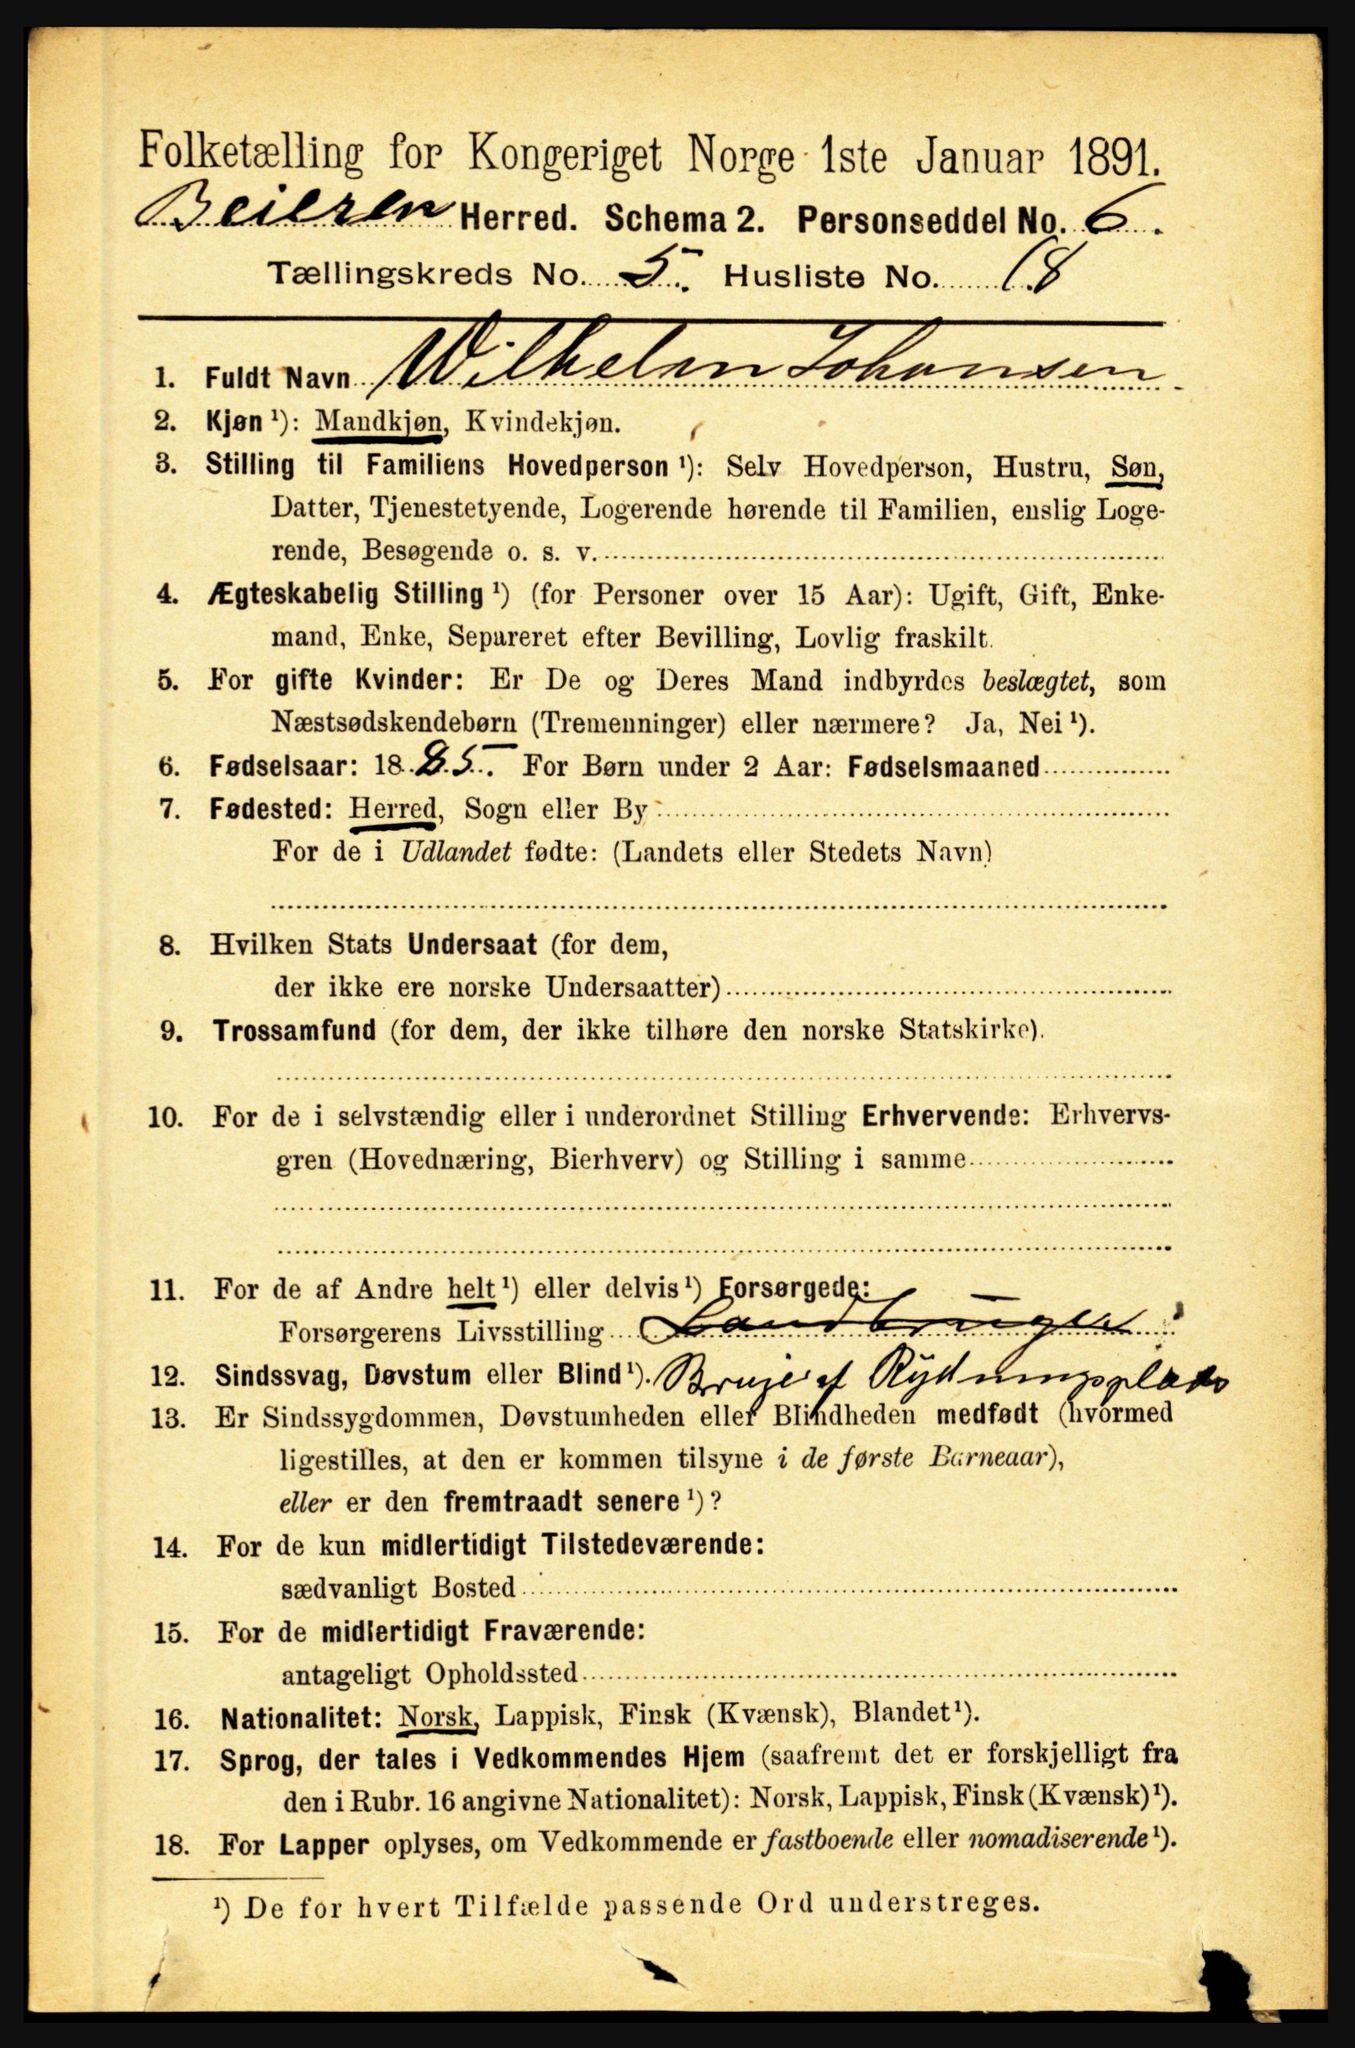 Folketælling for Kongeriget Norge 1ste Januar 1891.
Beieren Herred. Schema 2. Personseddel No. 6.
Tællingskreds No. 5. Husliste No. 18
1. Fuldt Navn Wilhelm Johansen
2. Kjøn ¹): Mandkjøn, Kvindekjøn.
3. Stilling til Familiens Hovedperson ¹): Selv Hovedperson, Hustru, Søn,
Datter, Tjenestetyende, Logerende hørende til Familien, enslig Loge-
rende, Besøgende o. s. v.
4. Ægteskabelig Stilling ¹) (for Personer over 15 Aar): Ugift, Gift, Enke-
mand, Enke, Separeret efter Bevilling, Lovlig fraskilt.
5. For gifte Kvinder: Er De og Deres Mand indbyrdes beslægtet, som
Næstsødskendebørn (Tremenninger) eller nærmere? Ja, Nei ¹).
6. Fødselsaar: 1885. For Børn under 2 Aar: Fødselsmaaned
7. Fødested: Herred, Sogn eller By
For de i Udlandet fødte: (Landets eller Stedets Navn)
8. Hvilken Stats Undersaat (for dem,
der ikke ere norske Undersaatter)
9. Trossamfund (for dem, der ikke tilhøre den norske Statskirke).
10. For de i selvstændig eller i underordnet Stilling Erhvervende: Erhvervs-
gren (Hovednæring, Bierhverv) og Stilling i samme
11. For de af Andre helt ¹) eller delvis ¹) Forsørgede:
Forsørgerens Livsstilling Landbruger
12. Sindssvag, Døvstum eller Blind ¹). Bruger af Rydningsplads
13. Er Sindssygdommen, Døvstumheden eller Blindheden medfødt (hvormed
ligestilles, at den er kommen tilsyne i de første Barneaar),
eller er den fremtraadt senere ¹)?
14. For de kun midlertidigt Tilstedeværende:
sædvanligt Bosted
15. For de midlertidigt Fraværende:
antageligt Opholdssted
16. Nationalitet: Norsk, Lappisk, Finsk (Kvænsk), Blandet ¹).
17. Sprog, der tales i Vedkommendes Hjem (saafremt det er forskjelligt fra
den i Rubr. 16 angivne Nationalitet): Norsk, Lappisk, Finsk (Kvænsk) ¹).
18. For Lapper oplyses, om Vedkommende er fastboende eller nomadiserende ¹).
¹) De for hvert Tilfælde passende Ord understreges.